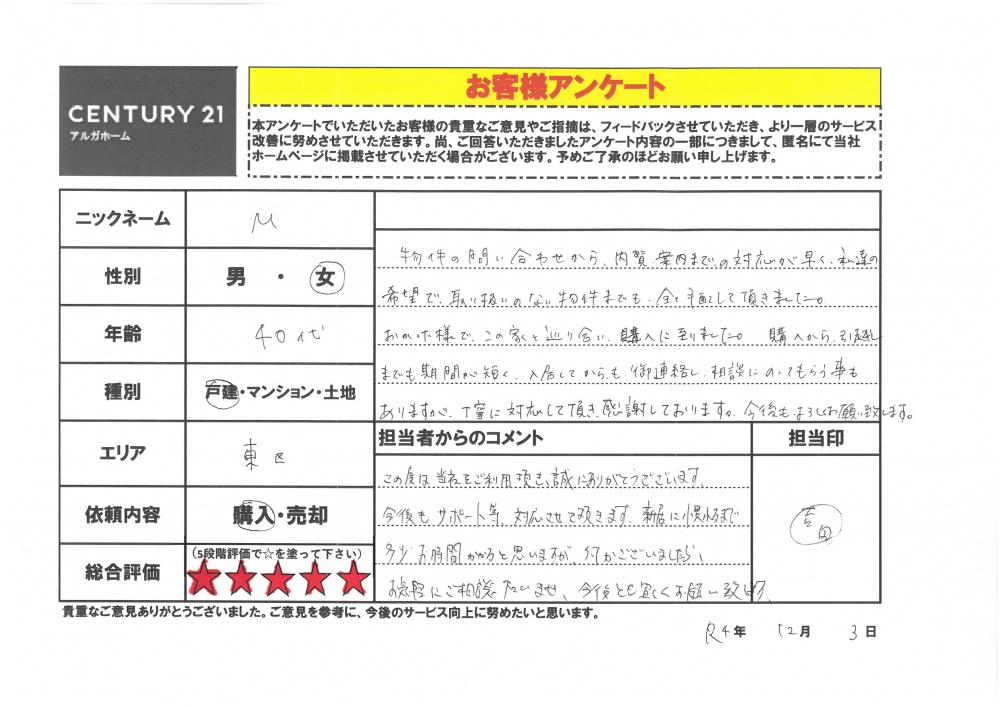 CENTURY 21
アルガホーム
お客様アンケート
本アンケートでいただいたお客様の貴重なご意見やご指摘は、フィードバックさせていただき、より一層のサービス
改善に努めさせていただきます。尚、ご回答いただきましたアンケート内容の一部につきまして、匿名にて当社
ホームページに掲載させていただく場合がございます。予めご了承のほどお願い申し上げます。
ニックネーム M
性別 男・女
年齢 40代
種別 戸建・マンション・土地
エリア 東区
依頼内容 購入・売却
総合評価 (5段階評価で☆を塗って下さい)
★★★★★
物件の問い合わせから、内覧、案内までの対応が早く、私達の
希望で、取り扱いのない物件までも、全て手配して頂きました。
おかげ様で、この家と巡り合い、購入に至りました。 購入から、引越し
までも期間が短く、入居してからも、御連絡し、相談にのってもらう事も
ありますが、丁寧に対応して頂き、感謝しております。今後もよろしくお願い致します。
担当者からのコメント
担当印
この度は当社をご利用頂き、誠にありがとうございます。
今後もサポート等、対応させて頂きます。新居に慣れるまで
多少お時間かかると思いますが、何かございましたら、
お気軽にご相談下さいませ。今後とも宜しくお願い致します。
吉田
貴重なご意見ありがとうございました。ご意見を参考に、今後のサービス向上に努めたいと思います。
R4年 12月 3日